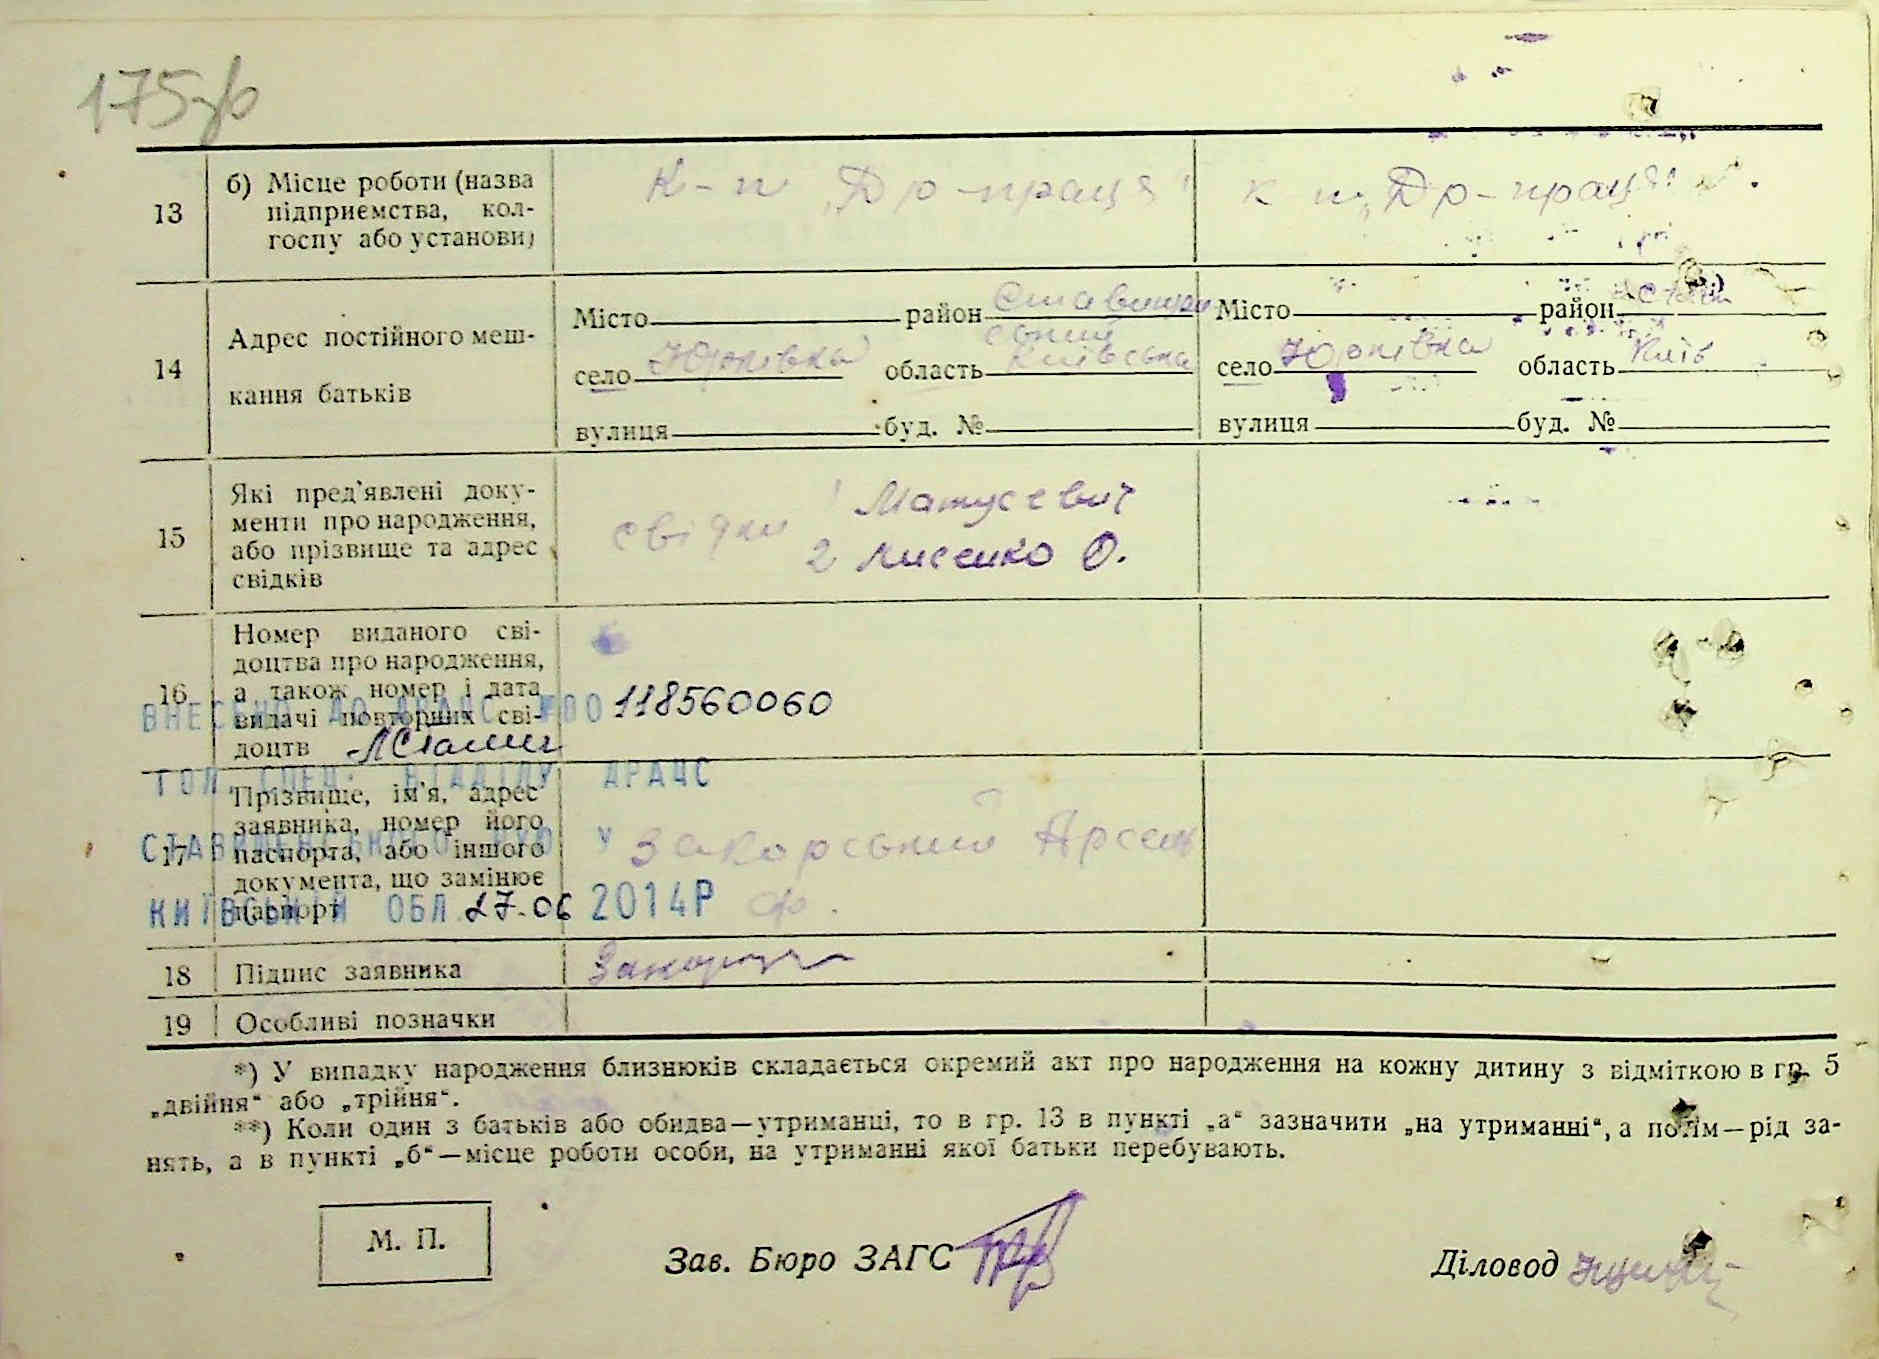 175зв
13 б) Місце роботи (назва К-п „Др-праця" к п „Др-праця"
підприємства, кол-
госпу або установи)
14 Адрес постійного меш-
кання батьків
Місто район Ставищен
ський
село Юрківка область Київська
вулиця буд. №
Місто район Став
село Юрківка область Київ
вулиця буд. №
15 Які пред'явлені доку-
менти про народження,
або прізвище та адрес
свідків
свідки 1 Матусевич
2 Лисенко О.
16 Номер виданого сві-
доцтва про народження,
а також номер і дата
видачі повторних сві-
доцтв
ВНЕСЕНО ДО ДРАЦС №00118560060
ГОЛ. СПЕЦ. ВІДДІЛУ ДРАЦС
СТАВИЩЕНСЬКОГО РУЮ У
КИЇВСЬКІЙ ОБЛ. 27.06 2014Р
17 Прізвище, ім'я, адрес
заявника, номер його
паспорта, або іншого
документа, що замінює
паспорт
Закорський Арсен
18 Підпис заявника
19 Особливі позначки
*) У випадку народження близнюків складається окремий акт про народження на кожну дитину з відміткою в гр. 5
„двійня" або „трійня".
**) Коли один з батьків або обидва—утриманці, то в гр. 13 в пункті „а" зазначити „на утриманні", а потім—рід за-
нять, а в пункті „б"—місце роботи особи, на утриманні якої батьки перебувають.
М. П.
Зав. Бюро ЗАГС
Діловод